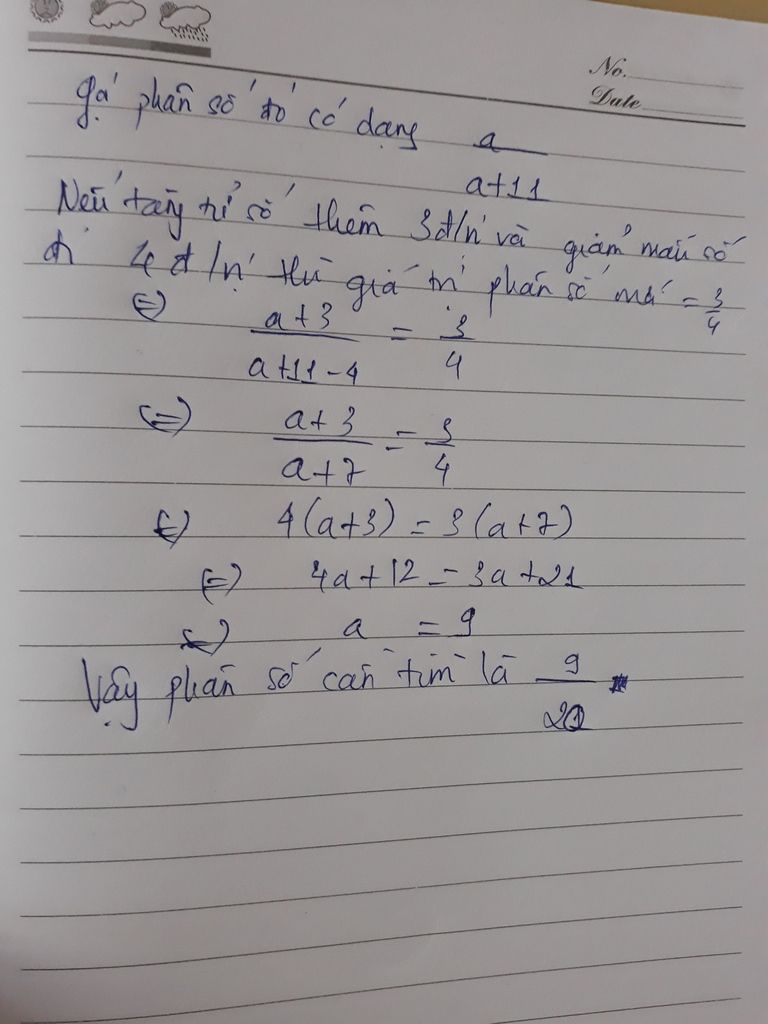 No.
Date
Gọi phân số đó có dạng a/(a+11)
Nếu tăng tử số thêm 3đ/vị và giảm mẫu số
đi 4đ/vị thì giá trị phân số mới = 3/4
(=) (a+3)/(a+11-4) = 3/4
(=) (a+3)/(a+7) = 3/4
(=) 4(a+3) = 3(a+7)
(=) 4a+12 = 3a+21
(=) a = 9
Vậy phân số cần tìm là 9/20